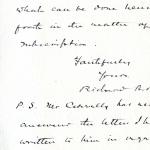 what can be done hence
forth in the matter of
subscription.
Faithfully
Yours
Richard
P.S. Mr Connelly has ne
answered the letter I h
written to him in rega